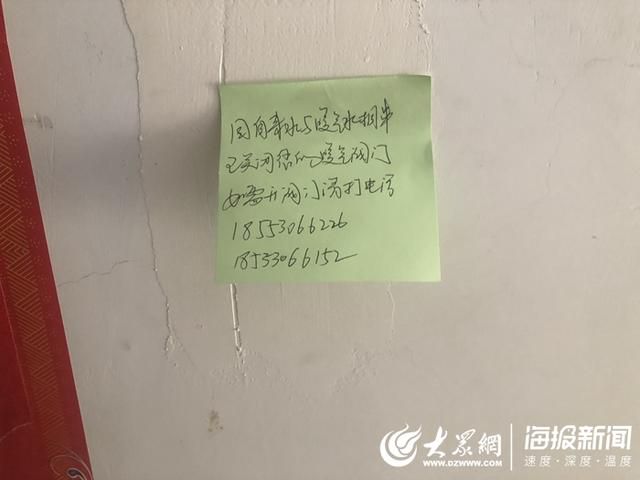 因自来水与暖气水相串
已关闭您的暖气阀门
如需开阀门请打电话
18553066226
18553066152
大眾網
WWW.DZWWW.COM
海报新闻
速度·深度·温度